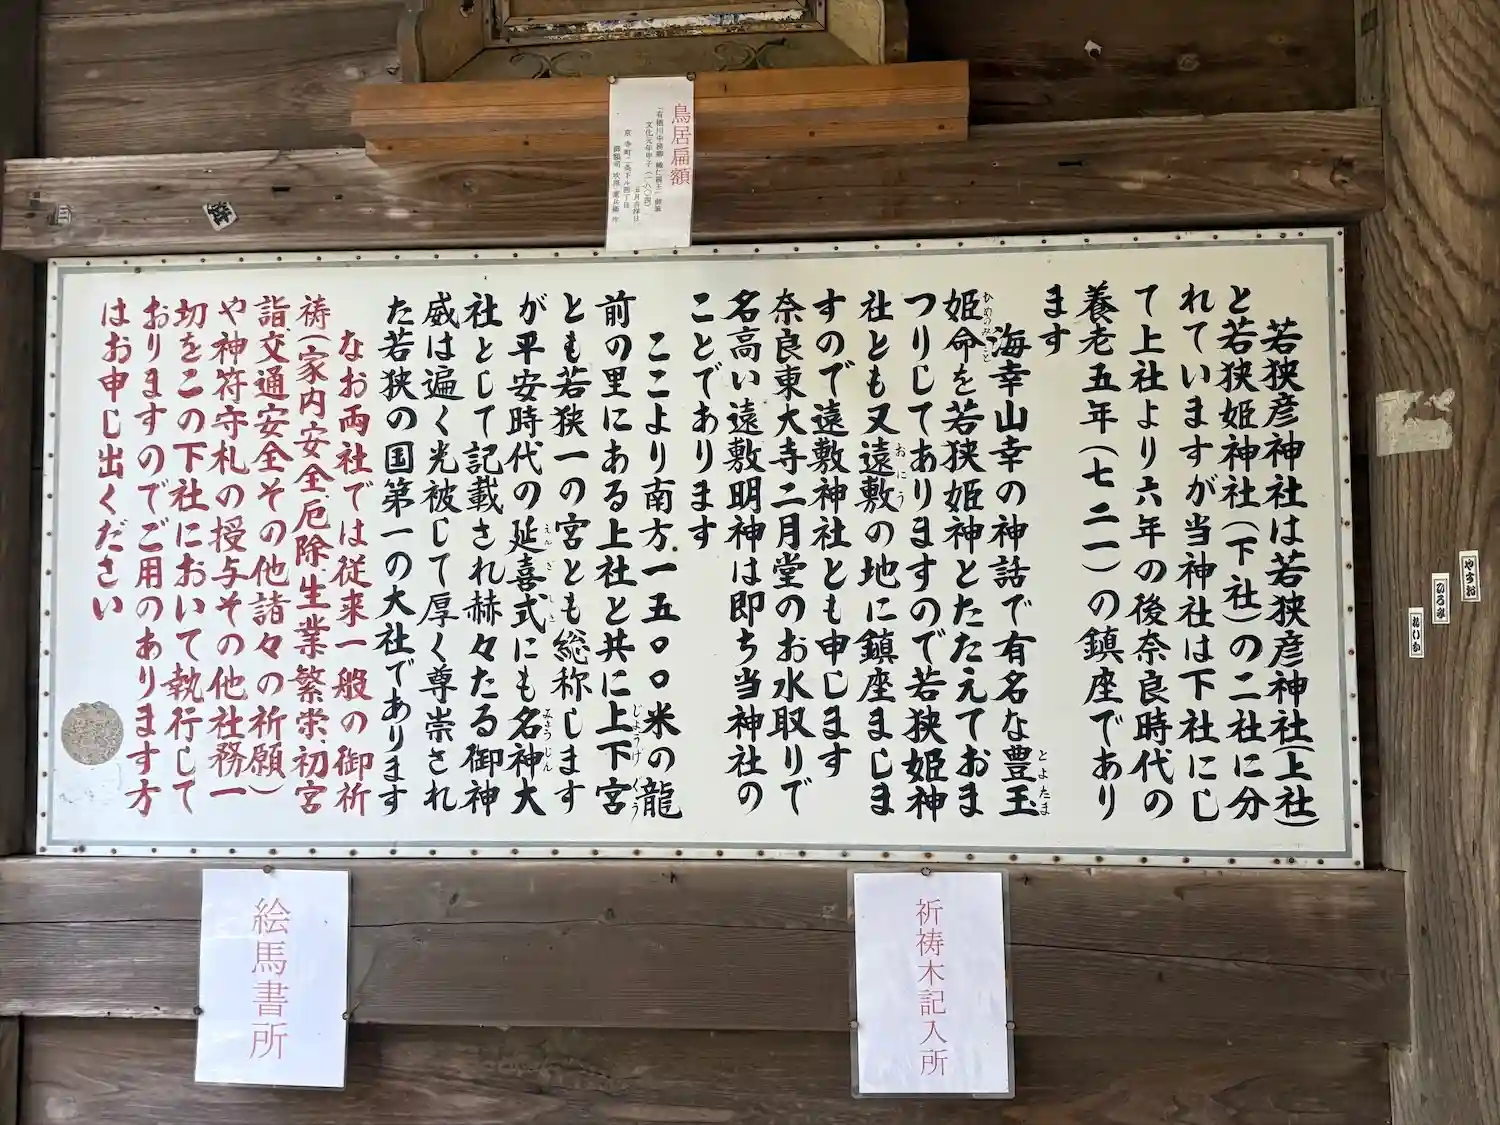 鳥居扁額
若狭彦神社は若狭彦神社(上社)
と若狭姫神社(下社)の二社に分
れていますが当神社は下社にし
て上社より六年の後奈良時代の
養老五年(七二一)の鎮座であり
ます
海幸山幸の神話で有名な豊玉
とよたま
姫命を若狭姫神とたたえておま
ひめのみこと
つりしてありますので若狭姫神
社とも又遠敷の地に鎮座ましま
おにう
すので遠敷神社とも申します
奈良東大寺二月堂のお水取りで
名高い遠敷明神は即ち当神社の
ことであります
ここより南方一五〇〇米の龍
前の里にある上社と共に上下宮
じようげぐう
とも若狭一の宮とも総称します
が平安時代の延喜式にも名神大
えんぎしき
みょうじん
社として記載され赫々たる御神
威は遍く光被して厚く尊崇され
た若狭の国第一の大社であります
なお両社では従来一般の御祈
祷(家内安全.厄除.生業繁栄.初宮
詣.交通安全その他諸々の祈願)
や神符守札の授与その他社務一
切をこの下社において執行して
おりますのでご用のあります方
はお申し出ください
祈祷木記入所
絵馬書所
やすお
ひろみ
れいか